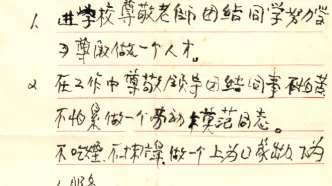 1. 进学校尊敬老师团结同学努力学
习尊敬做一个人才。
2 在工作中尊敬领导团结同事不怕苦
不怕累做一个劳动模范同志。
不吃烟不抹牌做一个上为国家出力为